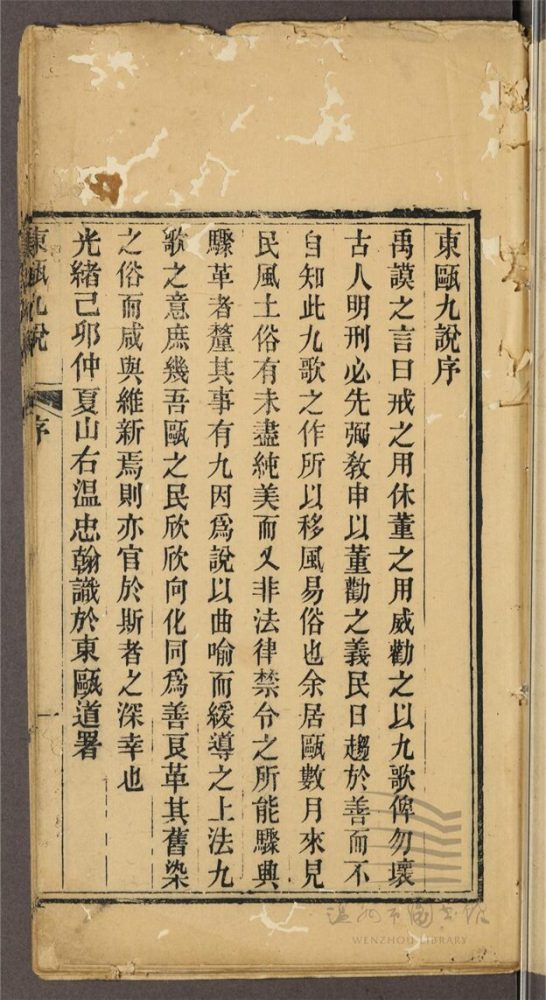 東甌九說序
禹謨之言曰戒之用休董之用威勸之以九歌俾勿壞
古人明刑必先弼教申以董勸之義民日趨於善而不
自知此九歌之作所以移風易俗也余居甌數月來見
民風土俗有未盡純美而又非法律禁令之所能驟與
驟革者釐其事有九因爲說以曲喻而緩導之上法九
歌之意庶幾吾甌之民欣欣向化同爲善良革其舊染
之俗而咸與維新焉則亦官於斯者之深幸也
光緒己卯仲夏山右温忠翰識於東甌道署
東甌九說
序
一
温州市圖書館
WENZHOU LIBRARY